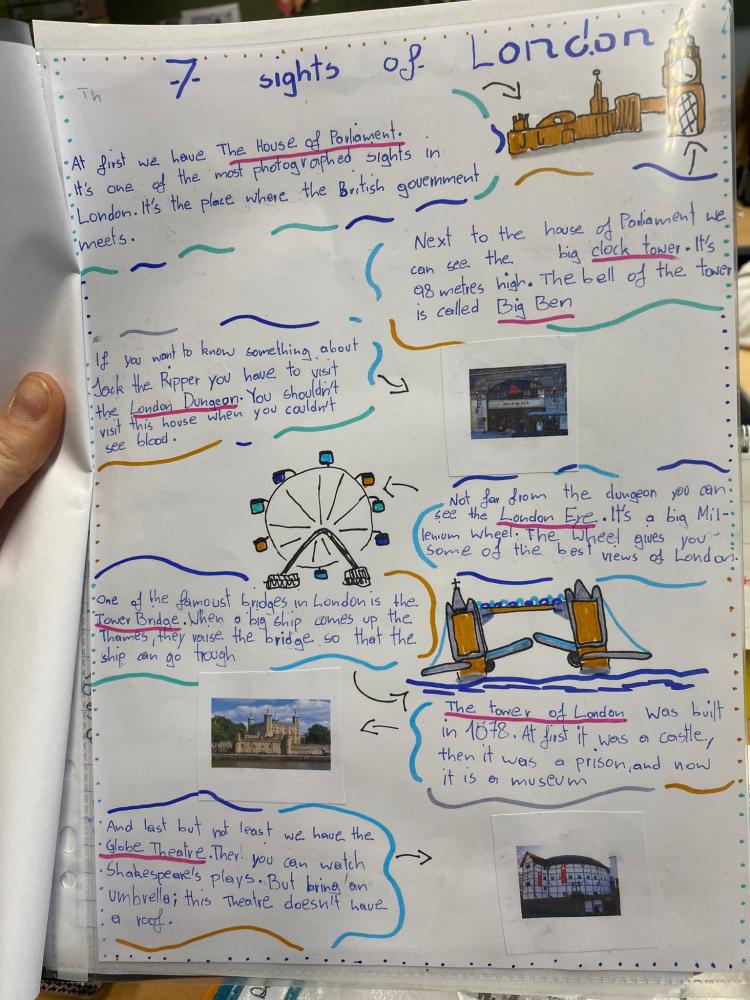 7 sights of London
Th
At first we have The House of Parliament.
It's one of the most photographed sights in
London. It's the place where the British government
meets.
Next to the house of Parliament we
can see the big clock tower. It's
98 metres high. The bell of the tower
is called Big Ben
If you want to know something about
Jack the Ripper you have to visit
the London Dungeon. You shouldn't
visit this house when you couldn't
see blood.
Not far from the dungeon you can
see the London Eye. It's a big Mil-
lenium wheel. The wheel gives you
some of the best views of London.
One of the famoust bridges in London is the
Tower Bridge. When a big ship comes up the
Thames, they raise the bridge so that the
ship can go trough
The tower of London was built
in 1078. At first it was a castle,
then it was a prison, and now
it is a museum
And last but not least we have the
Globe Theatre. Ther you can watch
Shakespeare's plays. But bring an
umbrella; this Theatre doesn't have
a roof.